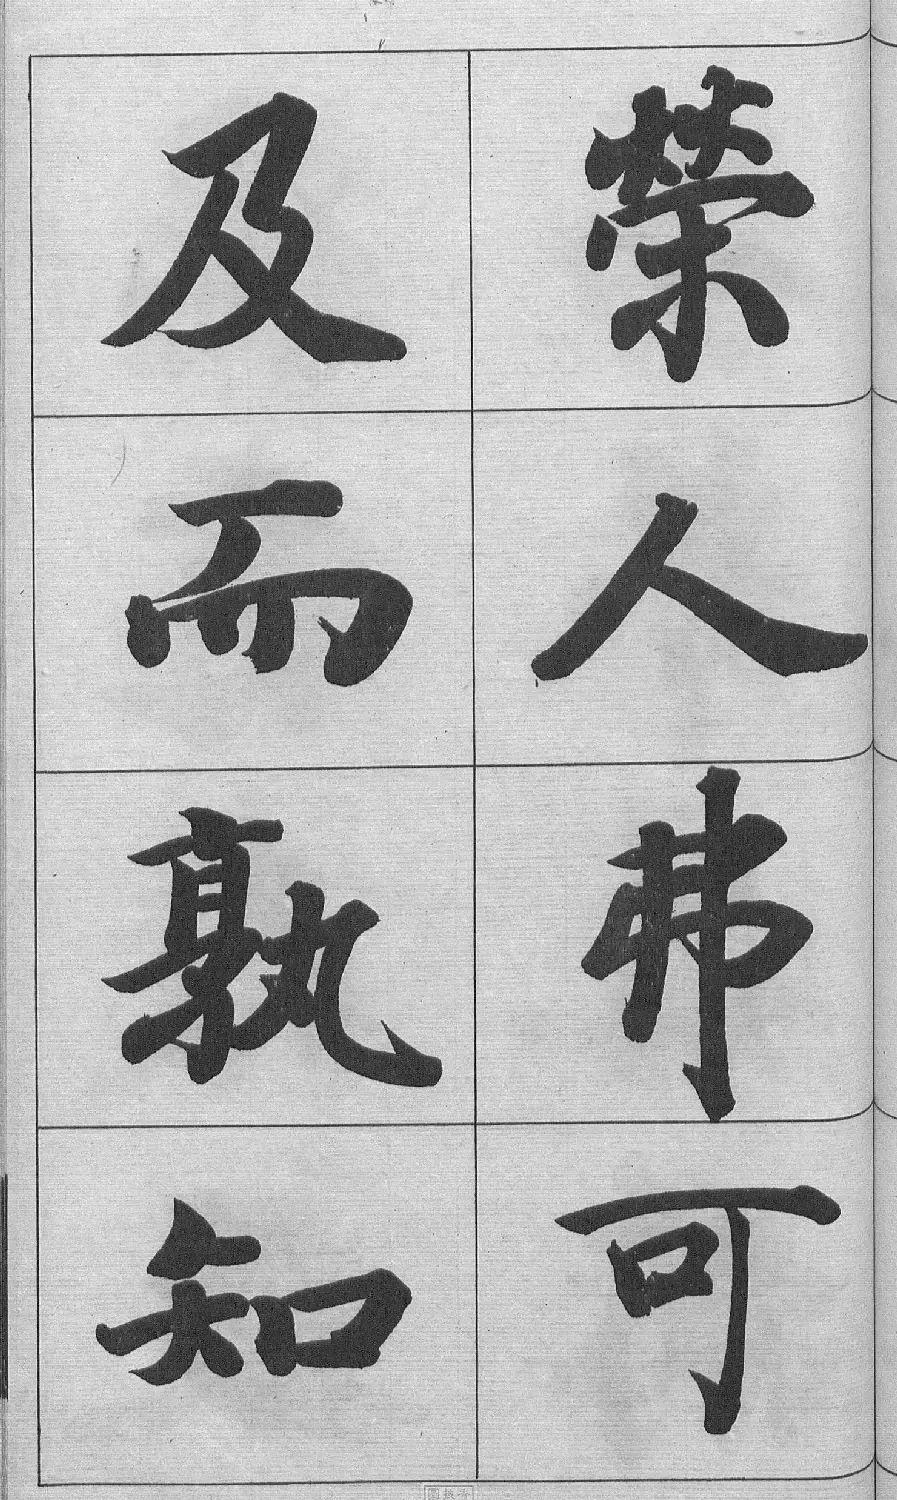 榮人弗可
及而孰知